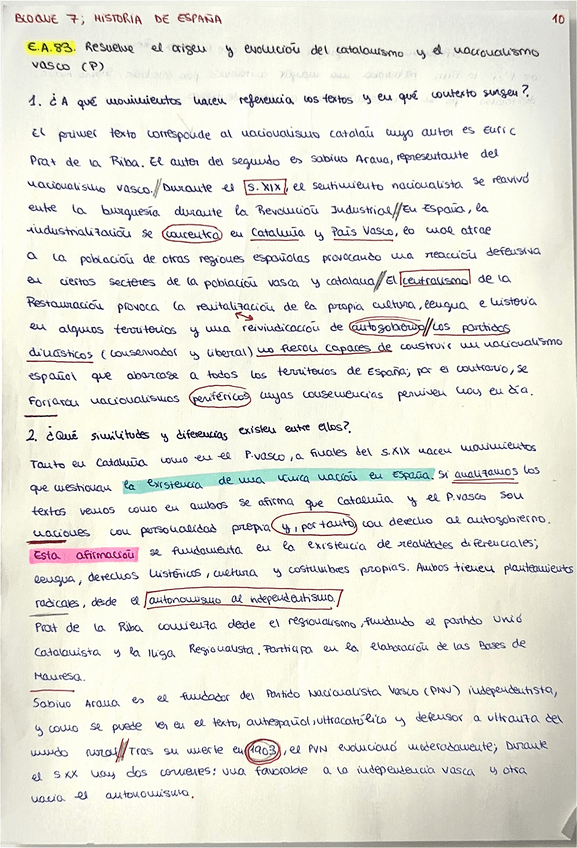 BLOQUE 7; HISTORIA DE ESPAÑA 10
E.A.83. Resuelve el origen y evolución del catalanismo y el nacionalismo
vasco (P)
1. ¿A qué movimientos hacen referencia los textos y en qué contexto surgen?
El primer texto corresponde al nacionalismo catalán cuyo autor es Enric
Prat de la Riba. El autor del segundo es Sabino Arana, representante del
nacionalismo vasco.//Durante el S.XIX, el sentimiento nacionalista se reavivó
entre la burguesía durante la Revolución Industrial//En España, la
industrialización se concentra en Cataluña y País Vasco, lo cual atrae
a la población de otras regiones españolas provocando una reacción defensiva
en ciertos sectores de la población vasca y catalana//El centralismo de la
Restauración provoca la revitalización de la propia cultura, lengua e historia
en algunos territorios y una reivindicación de autogobierno//Los partidos
dinásticos (conservador y liberal) no fueron capaces de construir un nacionalismo
español que abarcase a todos los territorios de España; por el contrario, se
forjaron nacionalismos periféricos cuyas consecuencias perviven hoy en día.
2. ¿Qué similitudes y diferencias existen entre ellos?
Tanto en Cataluña como en el P.vasco, a finales del s.XIX nacen movimientos
que cuestionan la existencia de una única nación en España. Si analizamos los
textos vemos como en ambos se afirma que Cataluña y el P.vasco son
naciones con personalidad propia y, por tanto con derecho al autogobierno.
Esta afirmación se fundamenta en la existencia de realidades diferenciales;
lengua, derechos históricos, cultura y costumbres propias. Ambos tienen planteamientos
radicales, desde el autonomismo al independentismo.
Prat de la Riba comienza desde el regionalismo, fundando el partido Unió
Catalanista y la lliga Regionalista. Participa en la elaboración de las Bases de
Manresa.
Sabino Arana es el fundador del Partido Nacionalista Vasco (PNV) independentista,
y como se puede ver en el texto, antiespañol, ultracatólico y defensor a ultranza del
mundo rural//Tras su muerte en 1903, el PVN evolucionó moderadamente; Durante
el S XX hay dos corrientes: una favorable a la independencia vasca y otra
hacia el autonomismo.